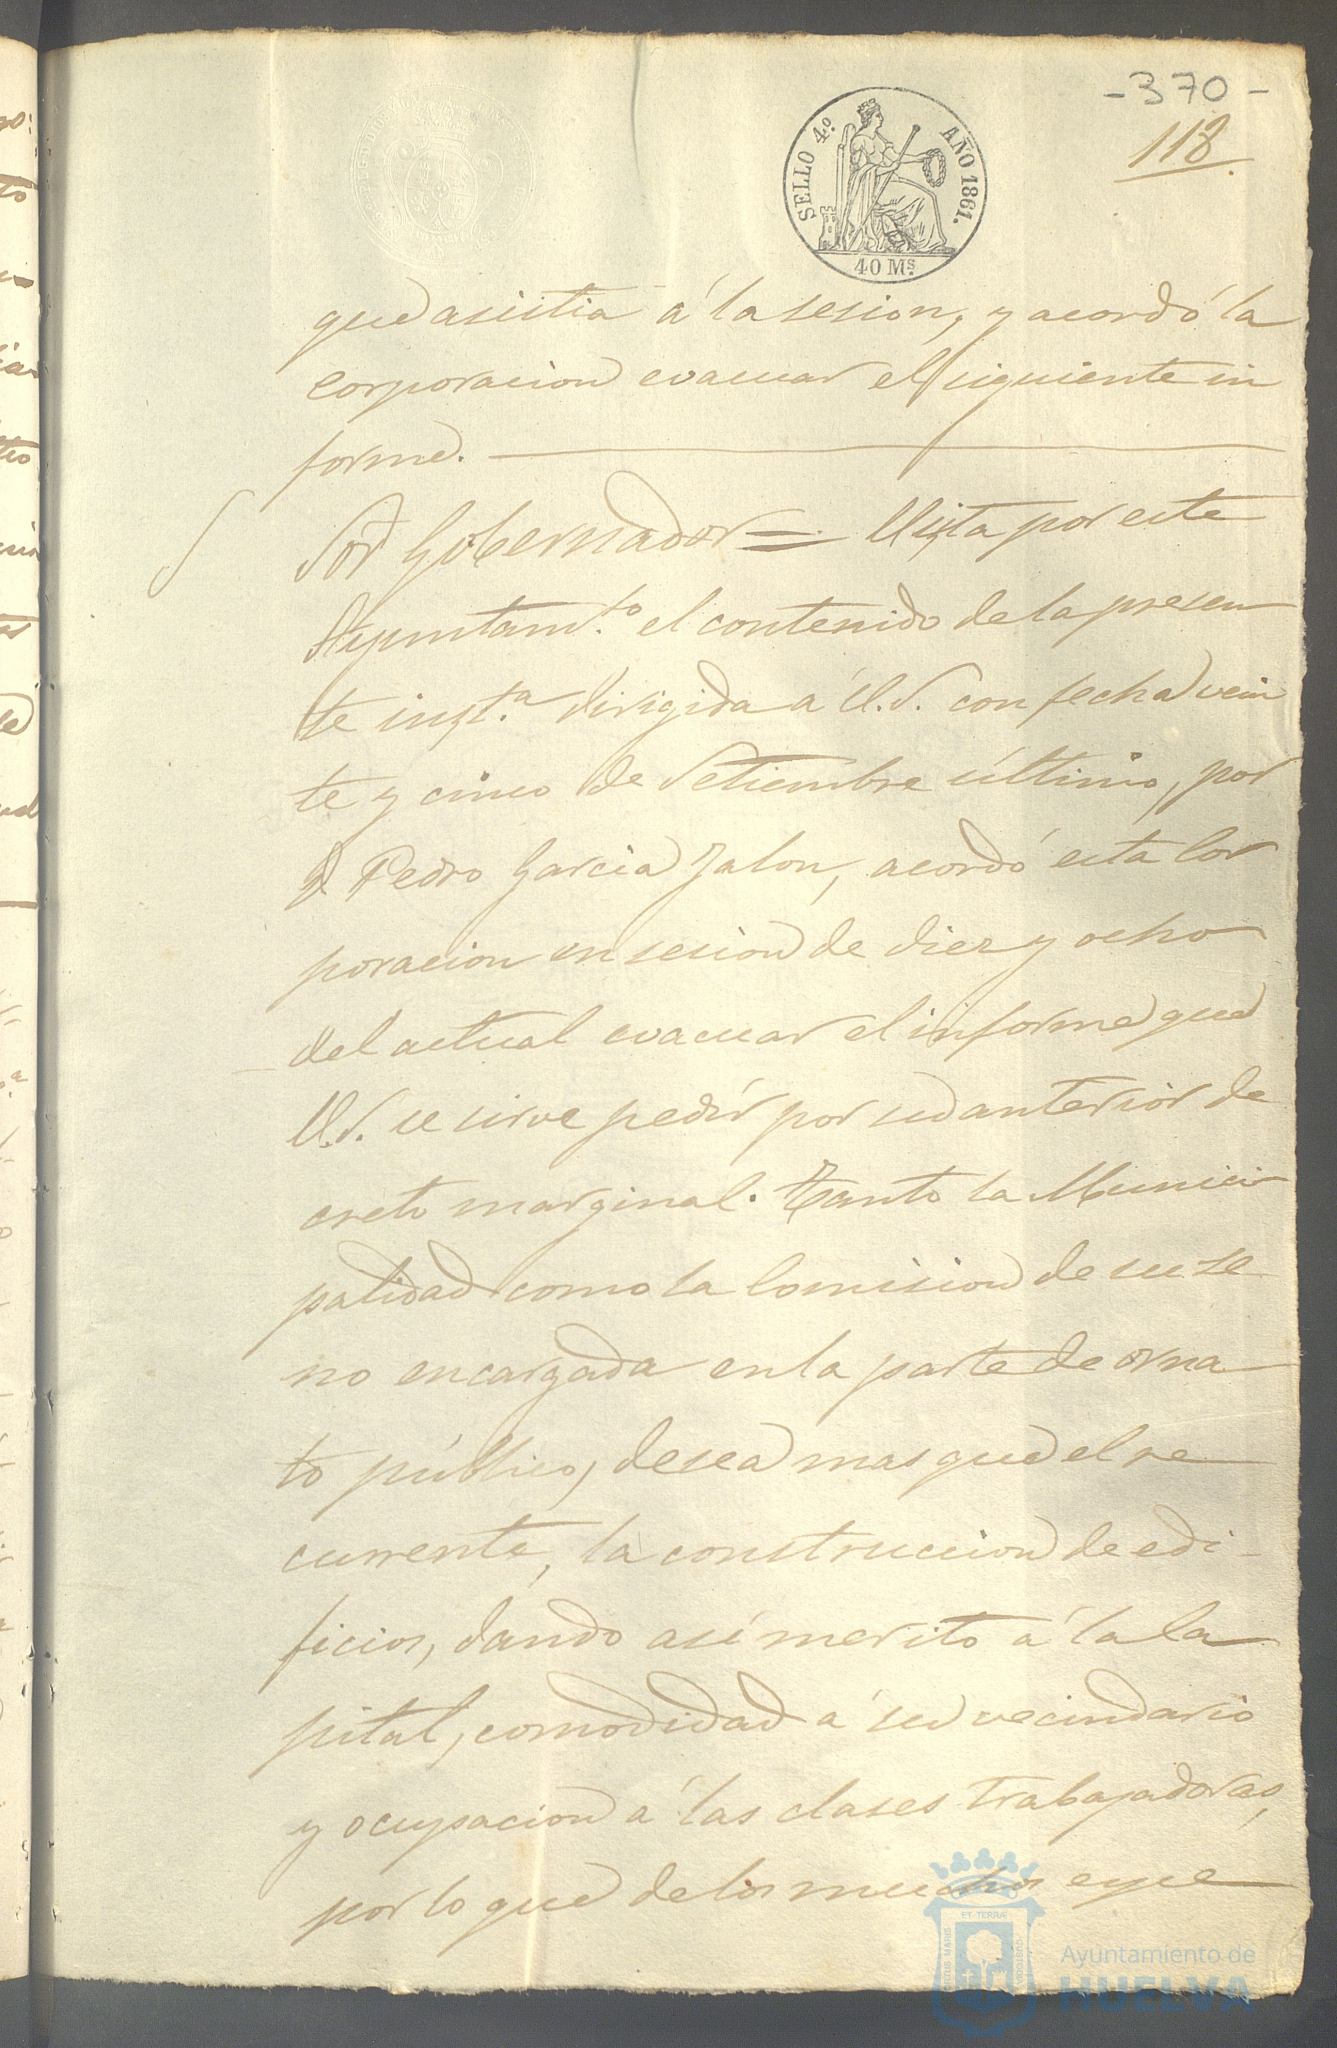 -370-
118.
SELLO 4.º AÑO 1861.
40 Ms.
que asistia á la sesion, y acordó la
corporacion evacuar el siguiente in
forme.
Sor Gobernador = Vista por este
Ayuntam.to el contenido de la presen
te inst.a dirigida á V.S. con fecha vein
te y cinco de Setiembre último, por
D Pedro Garcia Jalon, acordó esta Cor
poracion en sesion de diez y ocho
del actual evacuar el informe que
V.S. se sirve pedir por su anterior de
creto marginal. Tanto la Munici
palidad como la Comision de su se
no encargada en la parte de orna
to público, desea mas que el re
currente, la construccion de edi-
ficios, dando asi merito á la Ca
pital, comodidad á su vecindario
y ocupacion á las clases trabajadoras,
por lo que de los muchos espe
Ayuntamiento de
HUELVA